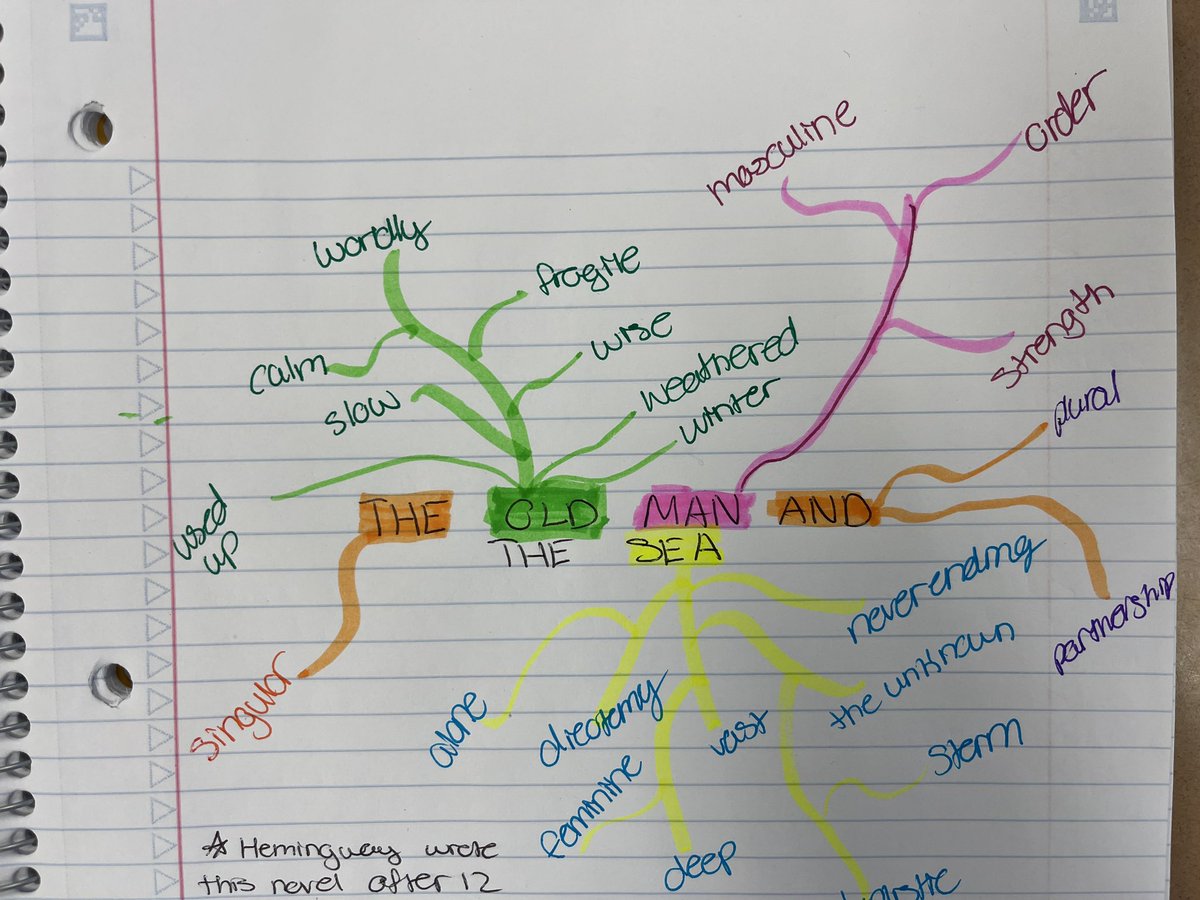 masculine
order
wordly
fragile
calm
wise
strength
slow
weathered
winter
plural
used
up
THE OLD MAN AND
THE SEA
neverending
partnership
the unknown
singular
alone
dicotemy
vast
storm
feminine
deep
☆ Hemingway wrote
this novel after 12